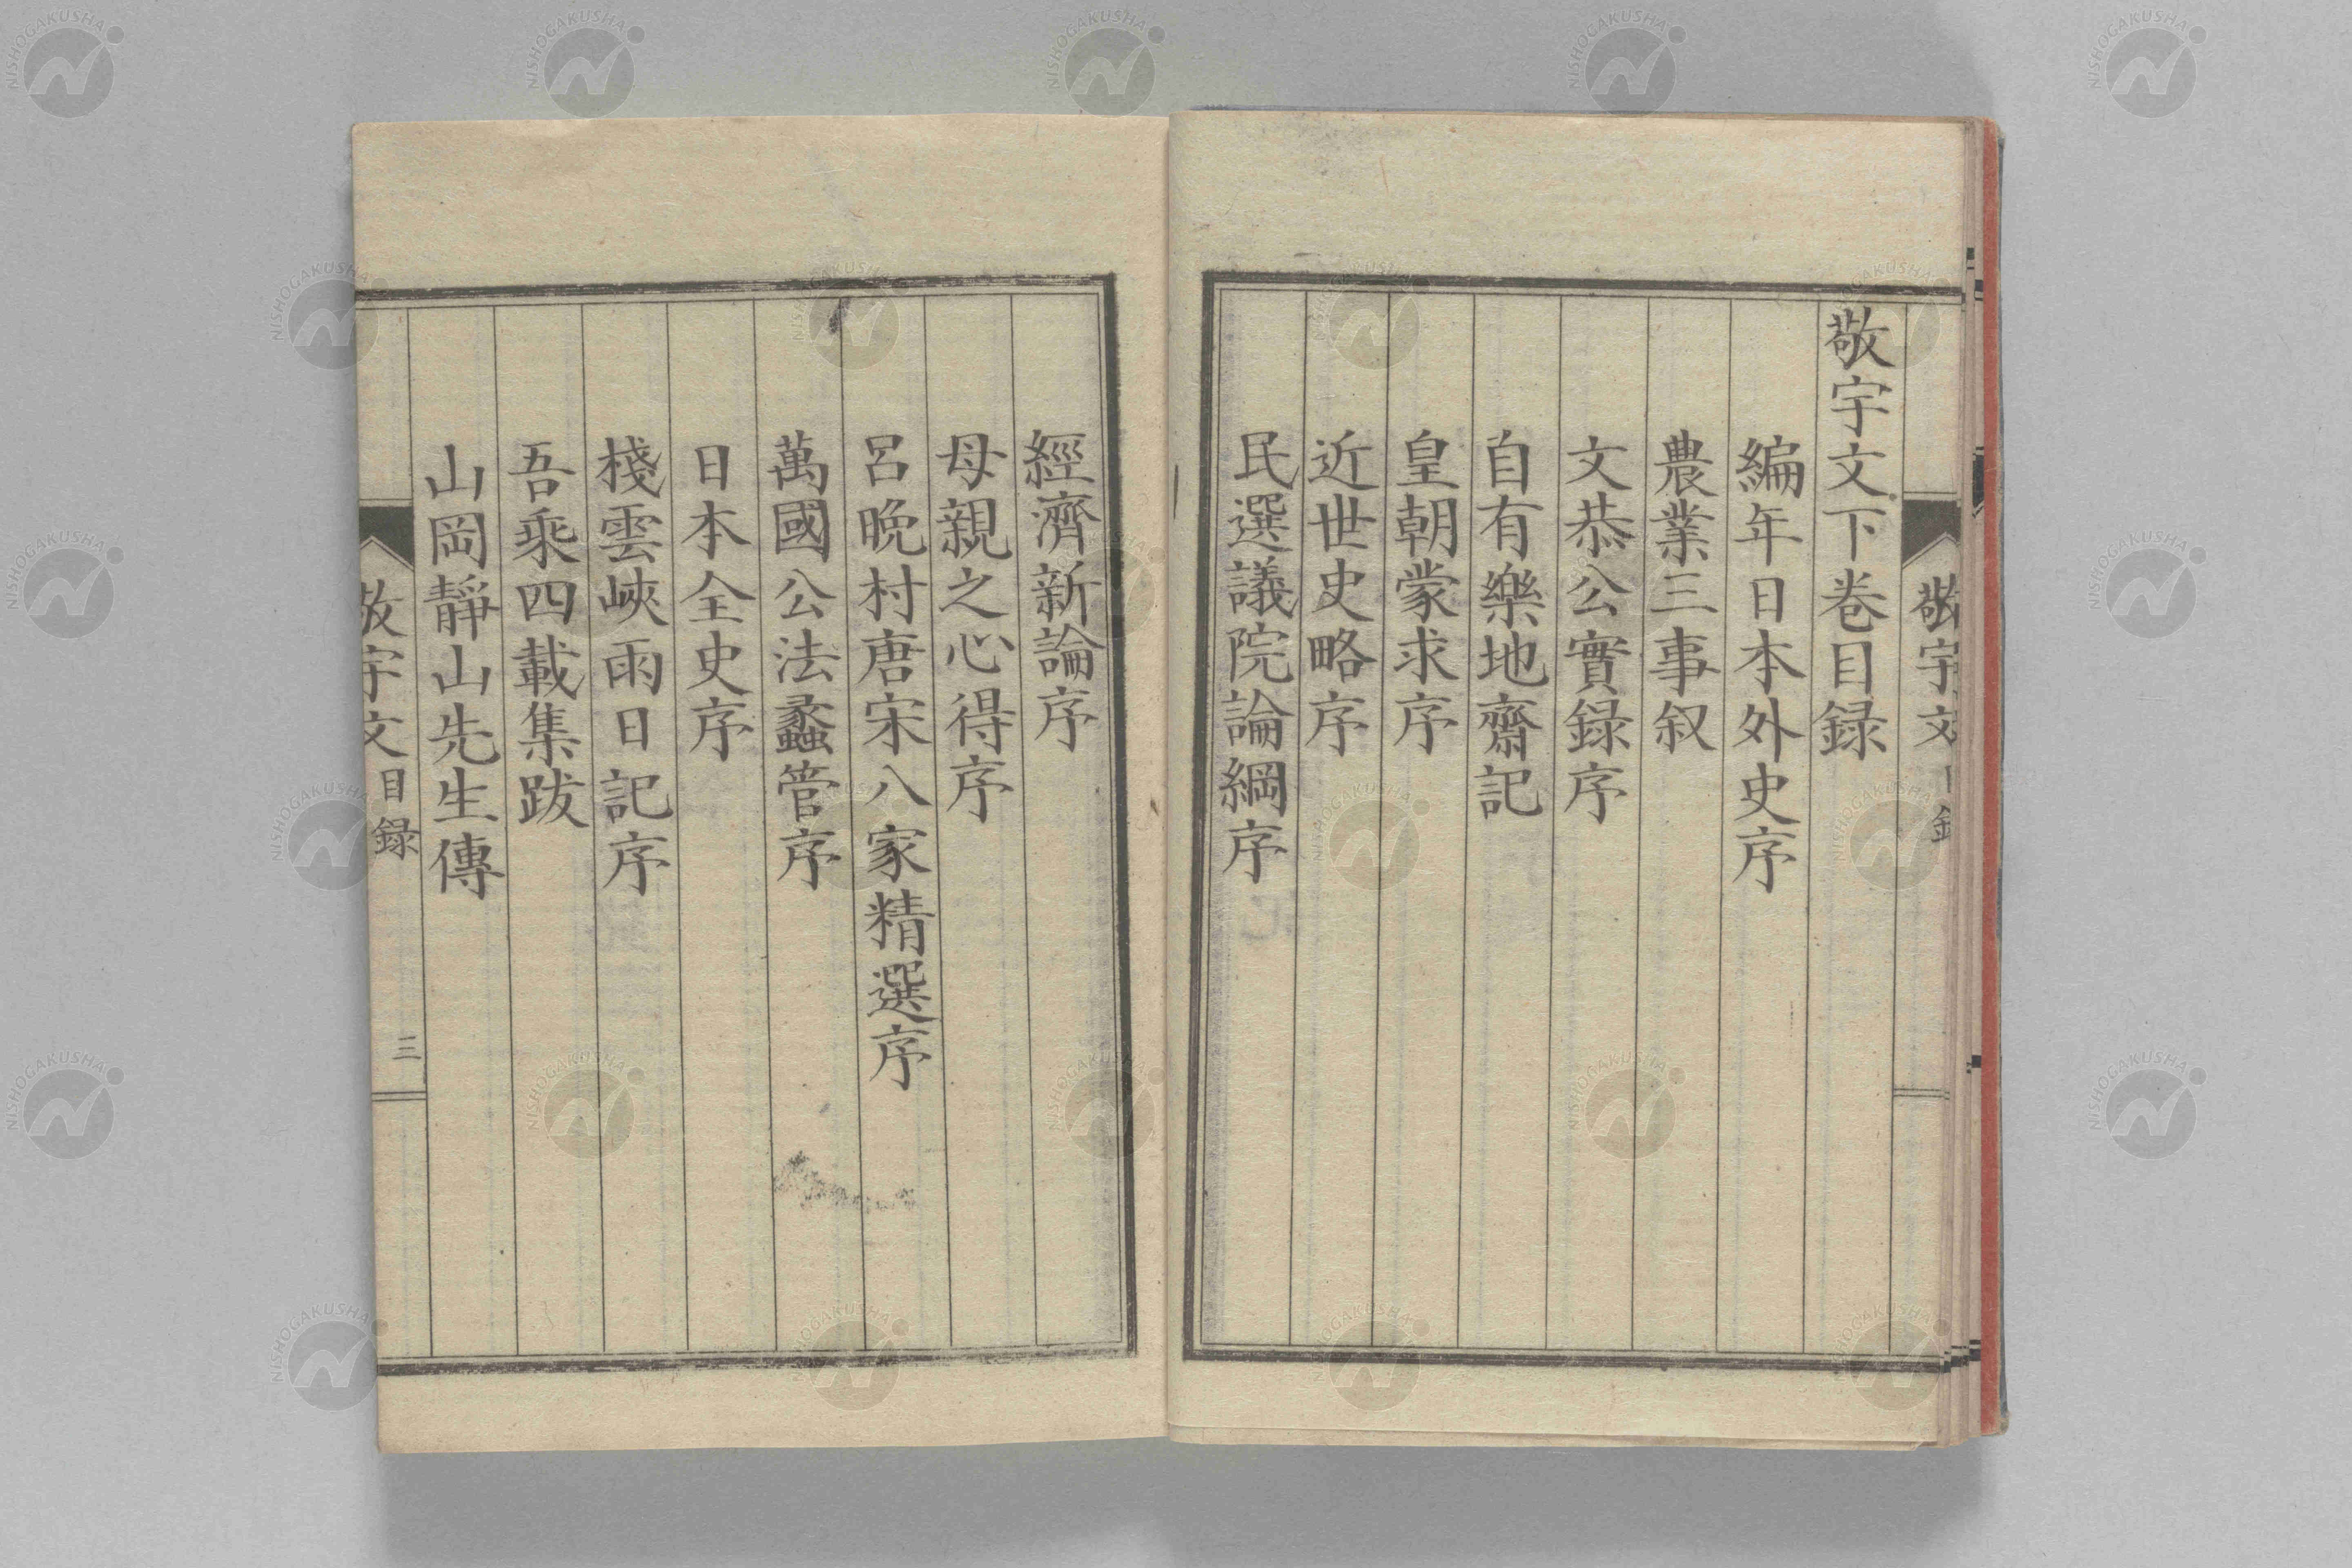 敬宇文下卷目録
編年日本外史序
農業三事叙
文恭公實録序
自有樂地齋記
皇朝蒙求序
近世史略序
民選議院論綱序
經濟新論序
母親之心得序
呂晚村唐宋八家精選序
萬國公法蠡管序
日本全史序
棧雲峽雨日記序
吾乘四載集跋
山岡靜山先生傳
敬宇文 目録 三
NISHOGAKUSHA